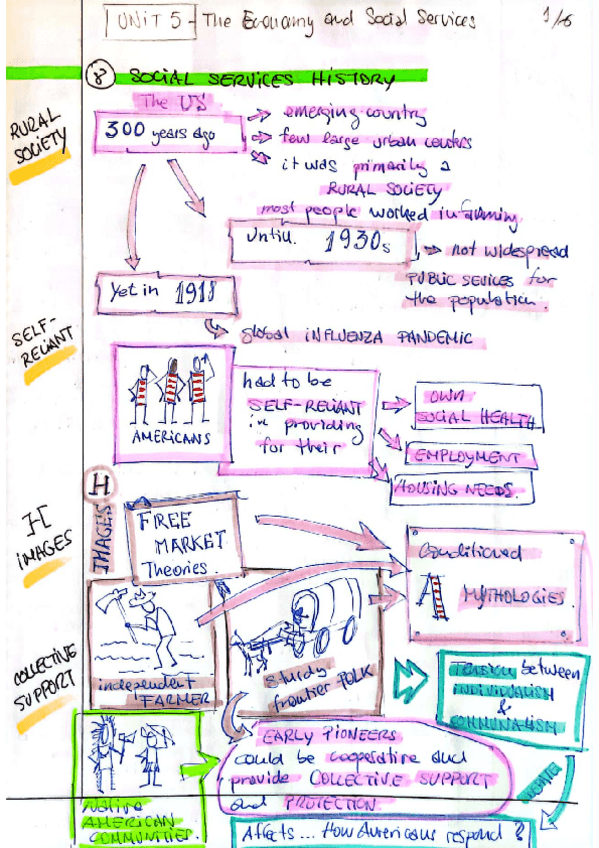 UNIT 5 - The Economy and Social Services
1/16
8 SOCIAL SERVICES HISTORY
The US
300 years ago
emerging country
few large urban centers
it was primarily a
RURAL SOCIETY
most people worked in farming
RURAL
SOCIETY
Until 1930s
not widespread
PUBLIC SEVICES for
the population.
Yet in 1918
global INFLUENZA PANDEMIC
SELF-
RELIANT
AMERICANS
had to be
SELF-RELIANT
in providing
for their
OWN
SOCIAL HEALTH
EMPLOYMENT
HOUSING NEEDS.
H
IMAGES
FREE
MARKET
Theories.
Conditioned
A MYTHOLOGIES.
H
IMAGES
independent
FARMER
sturdy
frontier FOLK
TENSION between
INDIVIDUALISM
&
COMMUNALISM
COLLECTIVE
SUPPORT
EARLY PIONEERS
could be cooperative and
provide COLLECTIVE SUPPORT
and PROTECTION
Native
AMERICAN
COMMUNITIES.
Affects... How Americans respond?